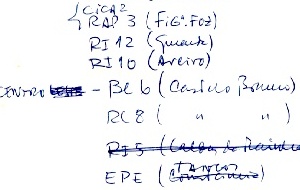 CICA 2
RAP 3 (Figª. Foz)
RI 12 (Guarda)
RI 10 (Aveiro)
CENTRO - BC 6 (Castelo Branco)
RC 8 ( " " )
RI 5 (Caldas da Rainha)
EPE (TANCOS)